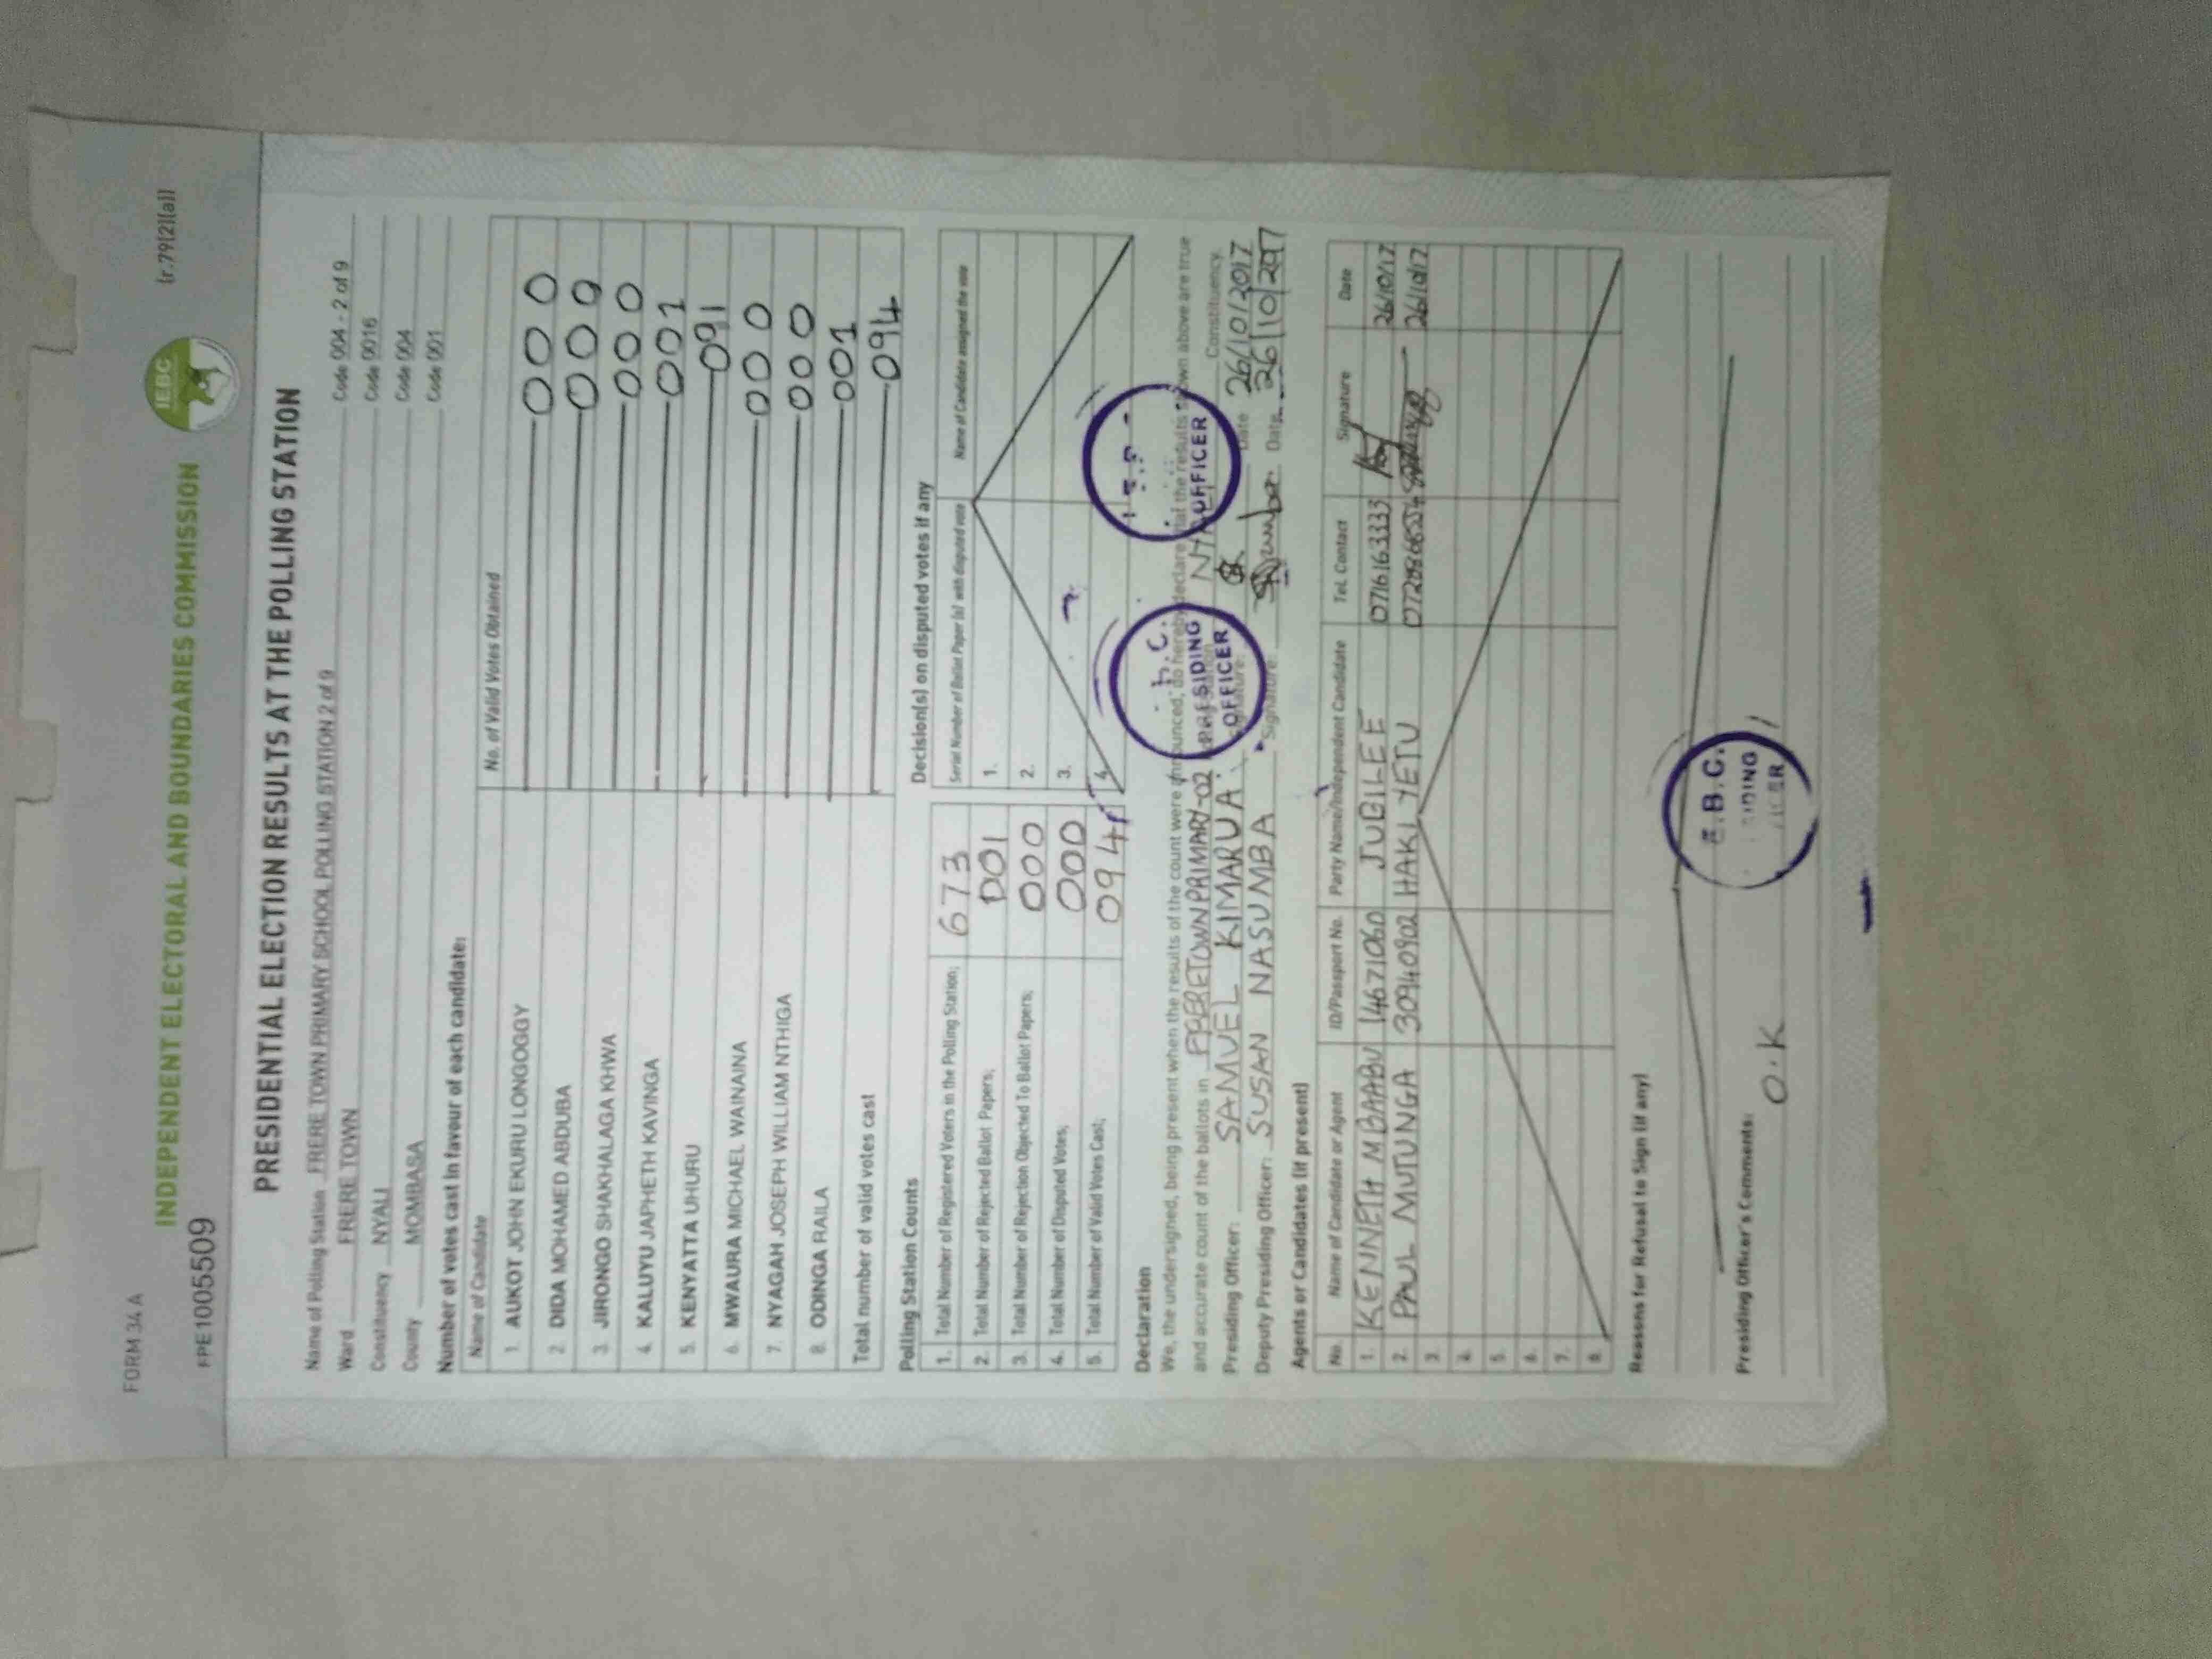 FORM 34 A
INDEPENDENT ELECTORAL AND BOUNDARIES COMMISSION
IEBC
(r.79(2)(a))
FPE1005509
PRESIDENTIAL ELECTION RESULTS AT THE POLLING STATION
Name of Polling Station FRERE TOWN PRIMARY SCHOOL POLLING STATION 2 of 9 Code 004 - 2 of 9
Ward FRERE TOWN Code 0016
Constituency NYALI Code 004
County MOMBASA Code 001
Number of votes cast in favour of each candidate:
Name of Candidate No. of Valid Votes Obtained
1. AUKOT JOHN EKURU LONGOGGY 000
2. DIDA MOHAMED ABDUBA 000
3. JIRONGO SHAKHALAGA KHWA 000
4. KALUYU JAPHETH KAVINGA 001
5. KENYATTA UHURU 091
6. MWAURA MICHAEL WAINAINA 000
7. NYAGAH JOSEPH WILLIAM NTHIGA 000
8. ODINGA RAILA 001
Total number of valid votes cast 094
Polling Station Counts
1. Total Number of Registered Voters in the Polling Station; 673
2. Total Number of Rejected Ballot Papers; 001
3. Total Number of Rejection Objected To Ballot Papers; 000
4. Total Number of Disputed Votes; 000
5. Total Number of Valid Votes Cast; 094
Decision(s) on disputed votes if any
Serial Number of Ballot Paper (s) with disputed vote Name of Candidate assigned the vote
1.
2.
3.
4.
Declaration
We, the undersigned, being present when the results of the count were announced, do hereby declare that the results shown above are true
and accurate count of the ballots in FRERETOWN PRIMARY-02 Constituency.
Presiding Officer: SAMUEL KIMARUA Signature: Date 26/10/2017
Deputy Presiding Officer: SUSAN NASUMBA Signature: Date 26/10/2017
PRESIDING OFFICER
OFFICER
Agents or Candidates (if present)
No. Name of Candidate or Agent ID/Passport No. Party Name/Independent Candidate Tel. Contact Signature Date
1. KENNETH MBAABU 14671060 JUBILEE 0716163333 26/10/17
2. PAUL MUTUNGA 309440902 HAKI YETU 26/10/17
3.
4.
5.
6.
7.
8.
Reasons for Refusal to Sign (if any)
Presiding Officer's Comments:
O.K